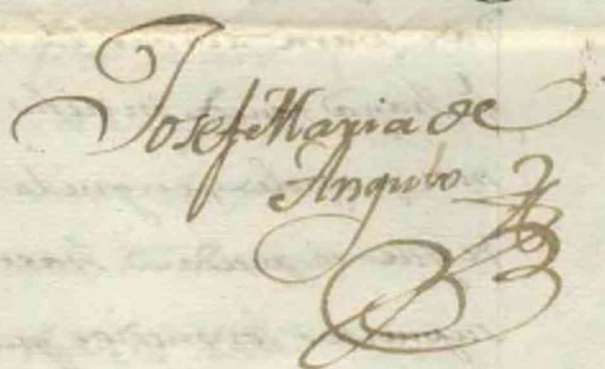 Josef Maria de
Angulo